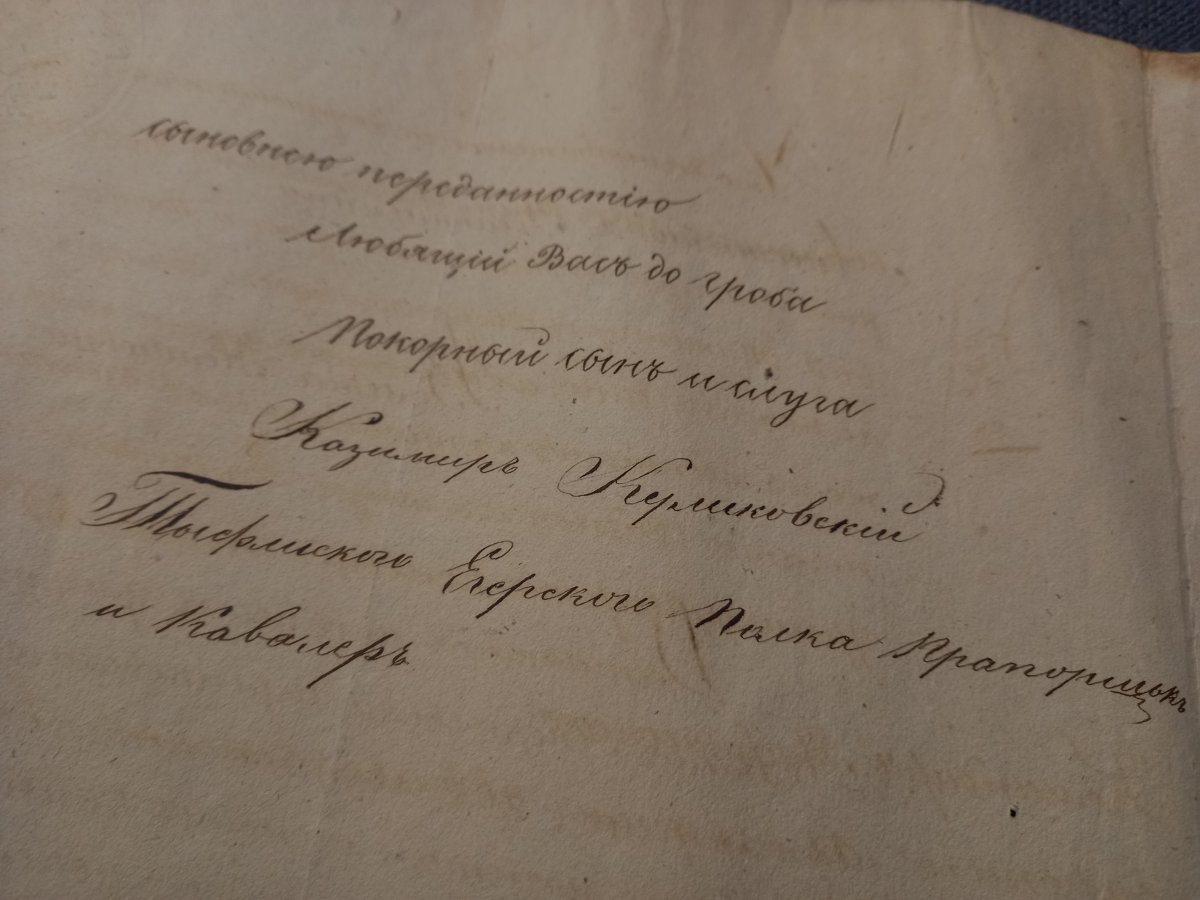 сыновнею переданностію
Любящій Васъ до гроба
Покорный сынъ и слуга
Казимиръ Куликовскій
Тыфлиского Егерского Полка Прапорщикъ
и Кавалеръ